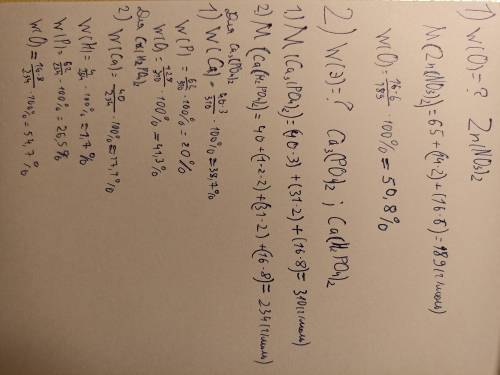 1) W(O)=? Zn(NO3)2
M(Zn(NO3)2)=65+(14·2)+(16·6)=189(г/моль)
W(O)=16·6/189 ·100%=50,8%
2) W(Э)=? Ca3(PO4)2 ; Ca(H2PO4)2
1) M(Ca3(PO4)2)=(40·3)+(31·2)+(16·8)=310(г/моль)
2) M(Ca(H2PO4)2)=40+(1·2·2)+(31·2)+(16·8)=234(г/моль)
Для Ca3(PO4)2
1) W(Ca)=40·3/310 ·100%=38,7%
W(P)=62/310 ·100%=20%
W(O)=128/310 ·100%=41,3%
Для Ca(H2PO4)2
2) W(Ca)=40/234 ·100%=17,1%
W(H)=4/234 ·100%=1,7%
W(P)=62/234 ·100%=26,5%
W(O)=128/234 ·100%=54,7%